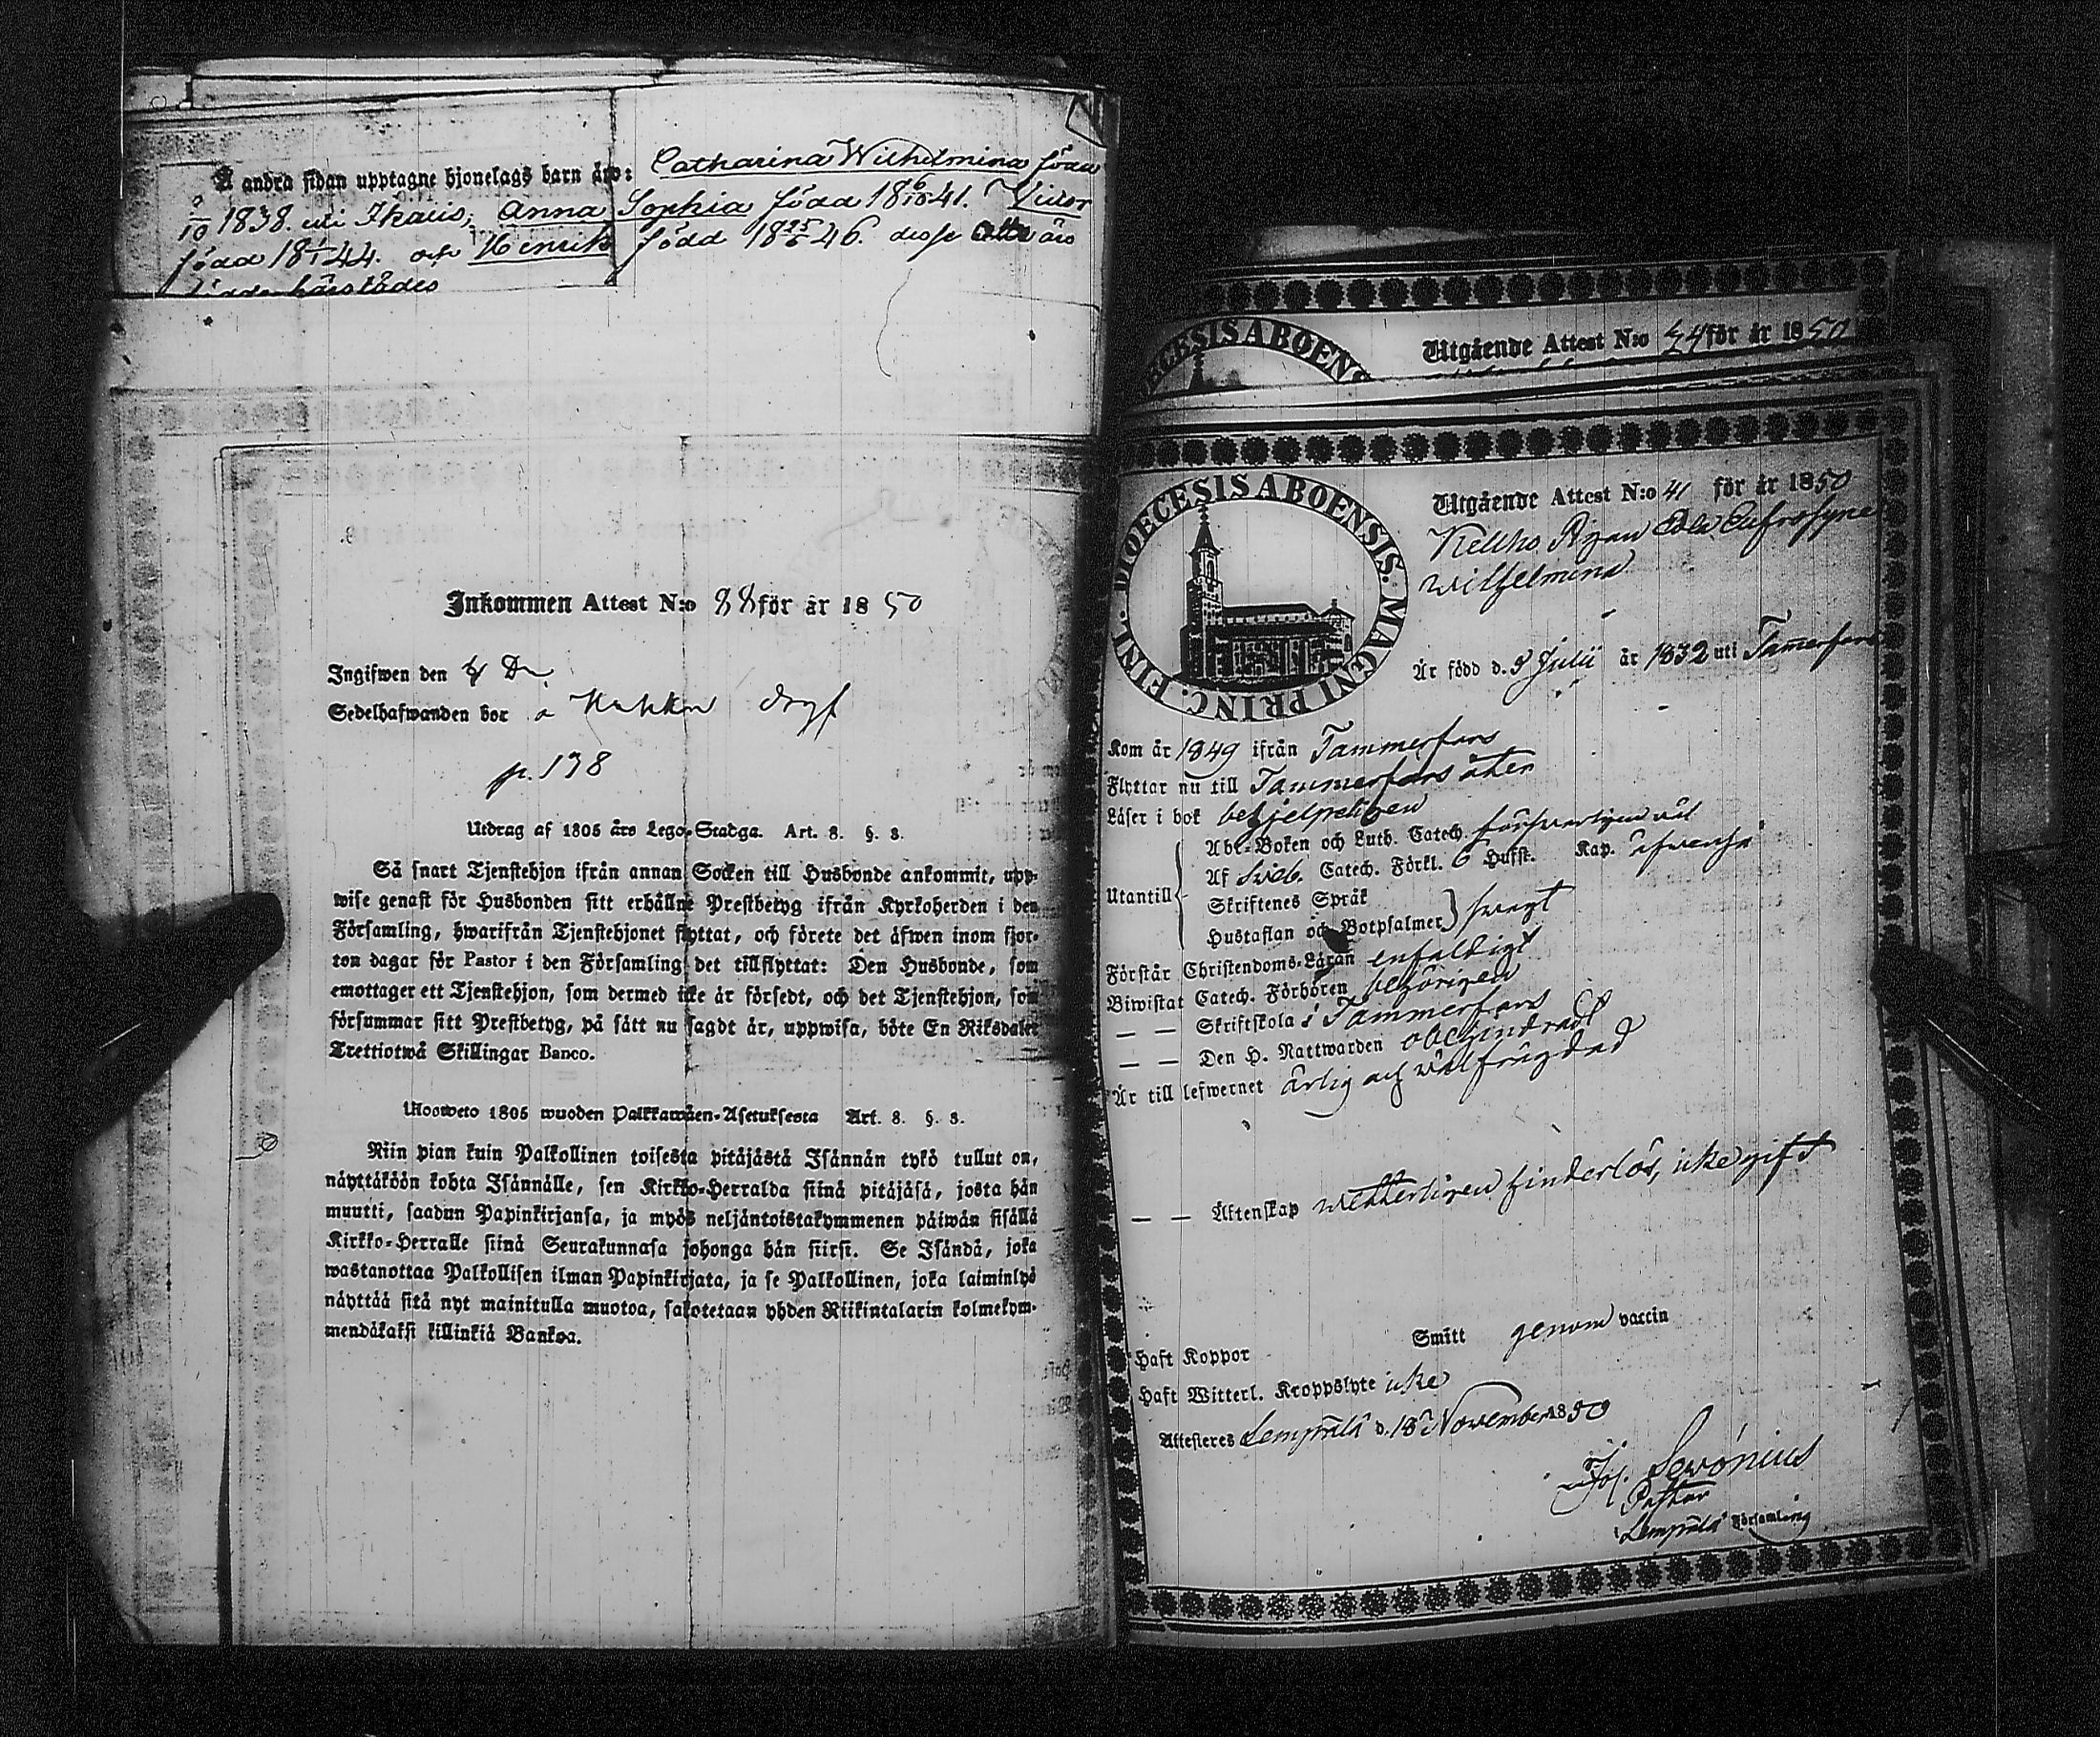 Å andra sidan upptagne hjonelags barn äro: Catharina Wilhelmina född
9/10 1838. uti Ikalis, Anna Sophia född 18 6/10 41. Victor
född 18 1/1 44. och Henrik född 18 25/6 46. desse alla äro
födde härstädes
Inkommen Attest N:o 88 för år 1850
Ingifwen den
Sedelhafwanden bor å
p. 138
Utdrag af 1805 års Lego-Stadga. Art. 8. §. 3.
Så snart Tjenstehjon ifrån annan Socken till Husbonde ankommit, upp-
wise genast för Husbonden sitt erhållne Prestbetyg ifrån Kyrkoherden i den
Församling, hwarifrån Tjenstehjonet flyttat, och förete det äfwen inom fjor-
ton dagar för Pastor i den Församling det tillflyttat: Den Husbonde, som
emottager ett Tjenstehjon, som dermed icke är försedt, och det Tjenstehjon, som
försummar sitt Prestbetyg, på sätt nu sagdt är, uppwisa, böte En Riksdaler
Trettiotwå Skillingar Banco.
Uloosweto 1805 wuoden Palkkawäen-Asetuksesta Art. 8. §. 3.
Niin pian kuin Palkollinen toisesta pitäjästä Isännän tykö tullut on,
näyttäköön kohta Isännälle, sen Kirkko-Herralda siinä pitäjäsä, josta hän
muutti, saadun Papinkirjansa, ja myös neljäntoistakymmenen päiwän sisällä
Kirkko-Herralle siinä Seurakunnasa johonga hän siirsi. Se Isändä, joka
wastanottaa Palkollisen ilman Papinkirjata, ja se Palkollinen, joka laiminlyö
näyttää sitä nyt mainitulla muotoa, sakotetaan yhden Riikintalarin kolmekym-
mendäkaksi killinkiä Bankoa.
DIOECESIS ABOENS
Utgående Attest N:o 44 för år 1850
DIOECESIS ABOENSIS. MAGNI PRINC. FINL.
Utgående Attest N:o 41 för år 1850
Eufrosyne
Wilhelmina
Är född d. 9 Julii år 1832 uti Tammerfors
Kom år 1849 ifrån Tammerfors
Flyttar nu till Tammerfors åter
Läser i bok behjelpeligen
Utantill
Abc-Boken och Luth. Catech. försvarligen väl
Af Sveb. Catech. Förkl. 6 Hufst. Kap. äfvenså
Skriftenes Språk
Hustaflan och Botpsalmer svagt
Förstår Christendoms-Läran enfaldigt
Biwistat Catech. Förhören behörigen
— — Skriftskola i Tammerfors
— — Den H. Nattwarden obehindrad
Är till lefwernet ärlig och välfrägdad
— — Äktenskap wetterligen hinderlös, icke gift
Haft Koppor Smitt genom vaccin
Haft Witterl. Kroppslyte icke
Attesteres Lempälä d. 18 November 1850
Joh. Sevónius
Pastor
Lempälä Församling